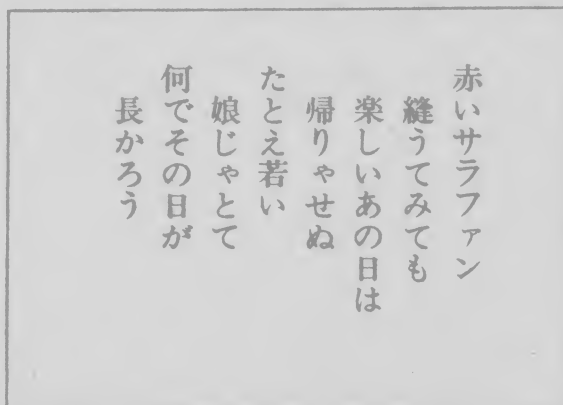 赤いサラファン
縫うてみても
楽しいあの日は
帰りゃせぬ
たとえ若い
娘じゃとて
何でその日が
長かろう